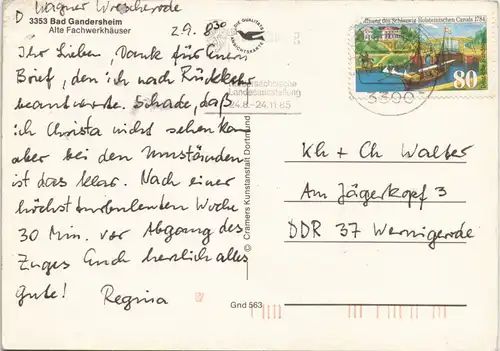 D Wagner
3353 Bad Gandersheim
Alte Fachwerkhäuser
29. 8 30
Ihr Lieben, Dank für Euren
Brief, den ich nach Rückkehr
beantworte. Schade, daß
ich Christa nicht sehen kann
aber bei den Umständen
ist das klar. Nach einer
höchst turbulenten Woche
30 Min. vor Abgang des
Zuges Euch herzlich alles
gute! Regina
DIE QUALITÄTS
ANSICHTSKARTE
Landesausstellung
24.8.-24.11.85
3300
Schleswig-Holsteinischen Canals 1784
80
© Cramers Kunstanstalt Dortmund
Gnd 563
Kh + Ch Walter
Am Jägerkopf 3
DDR 37 Wernigerode